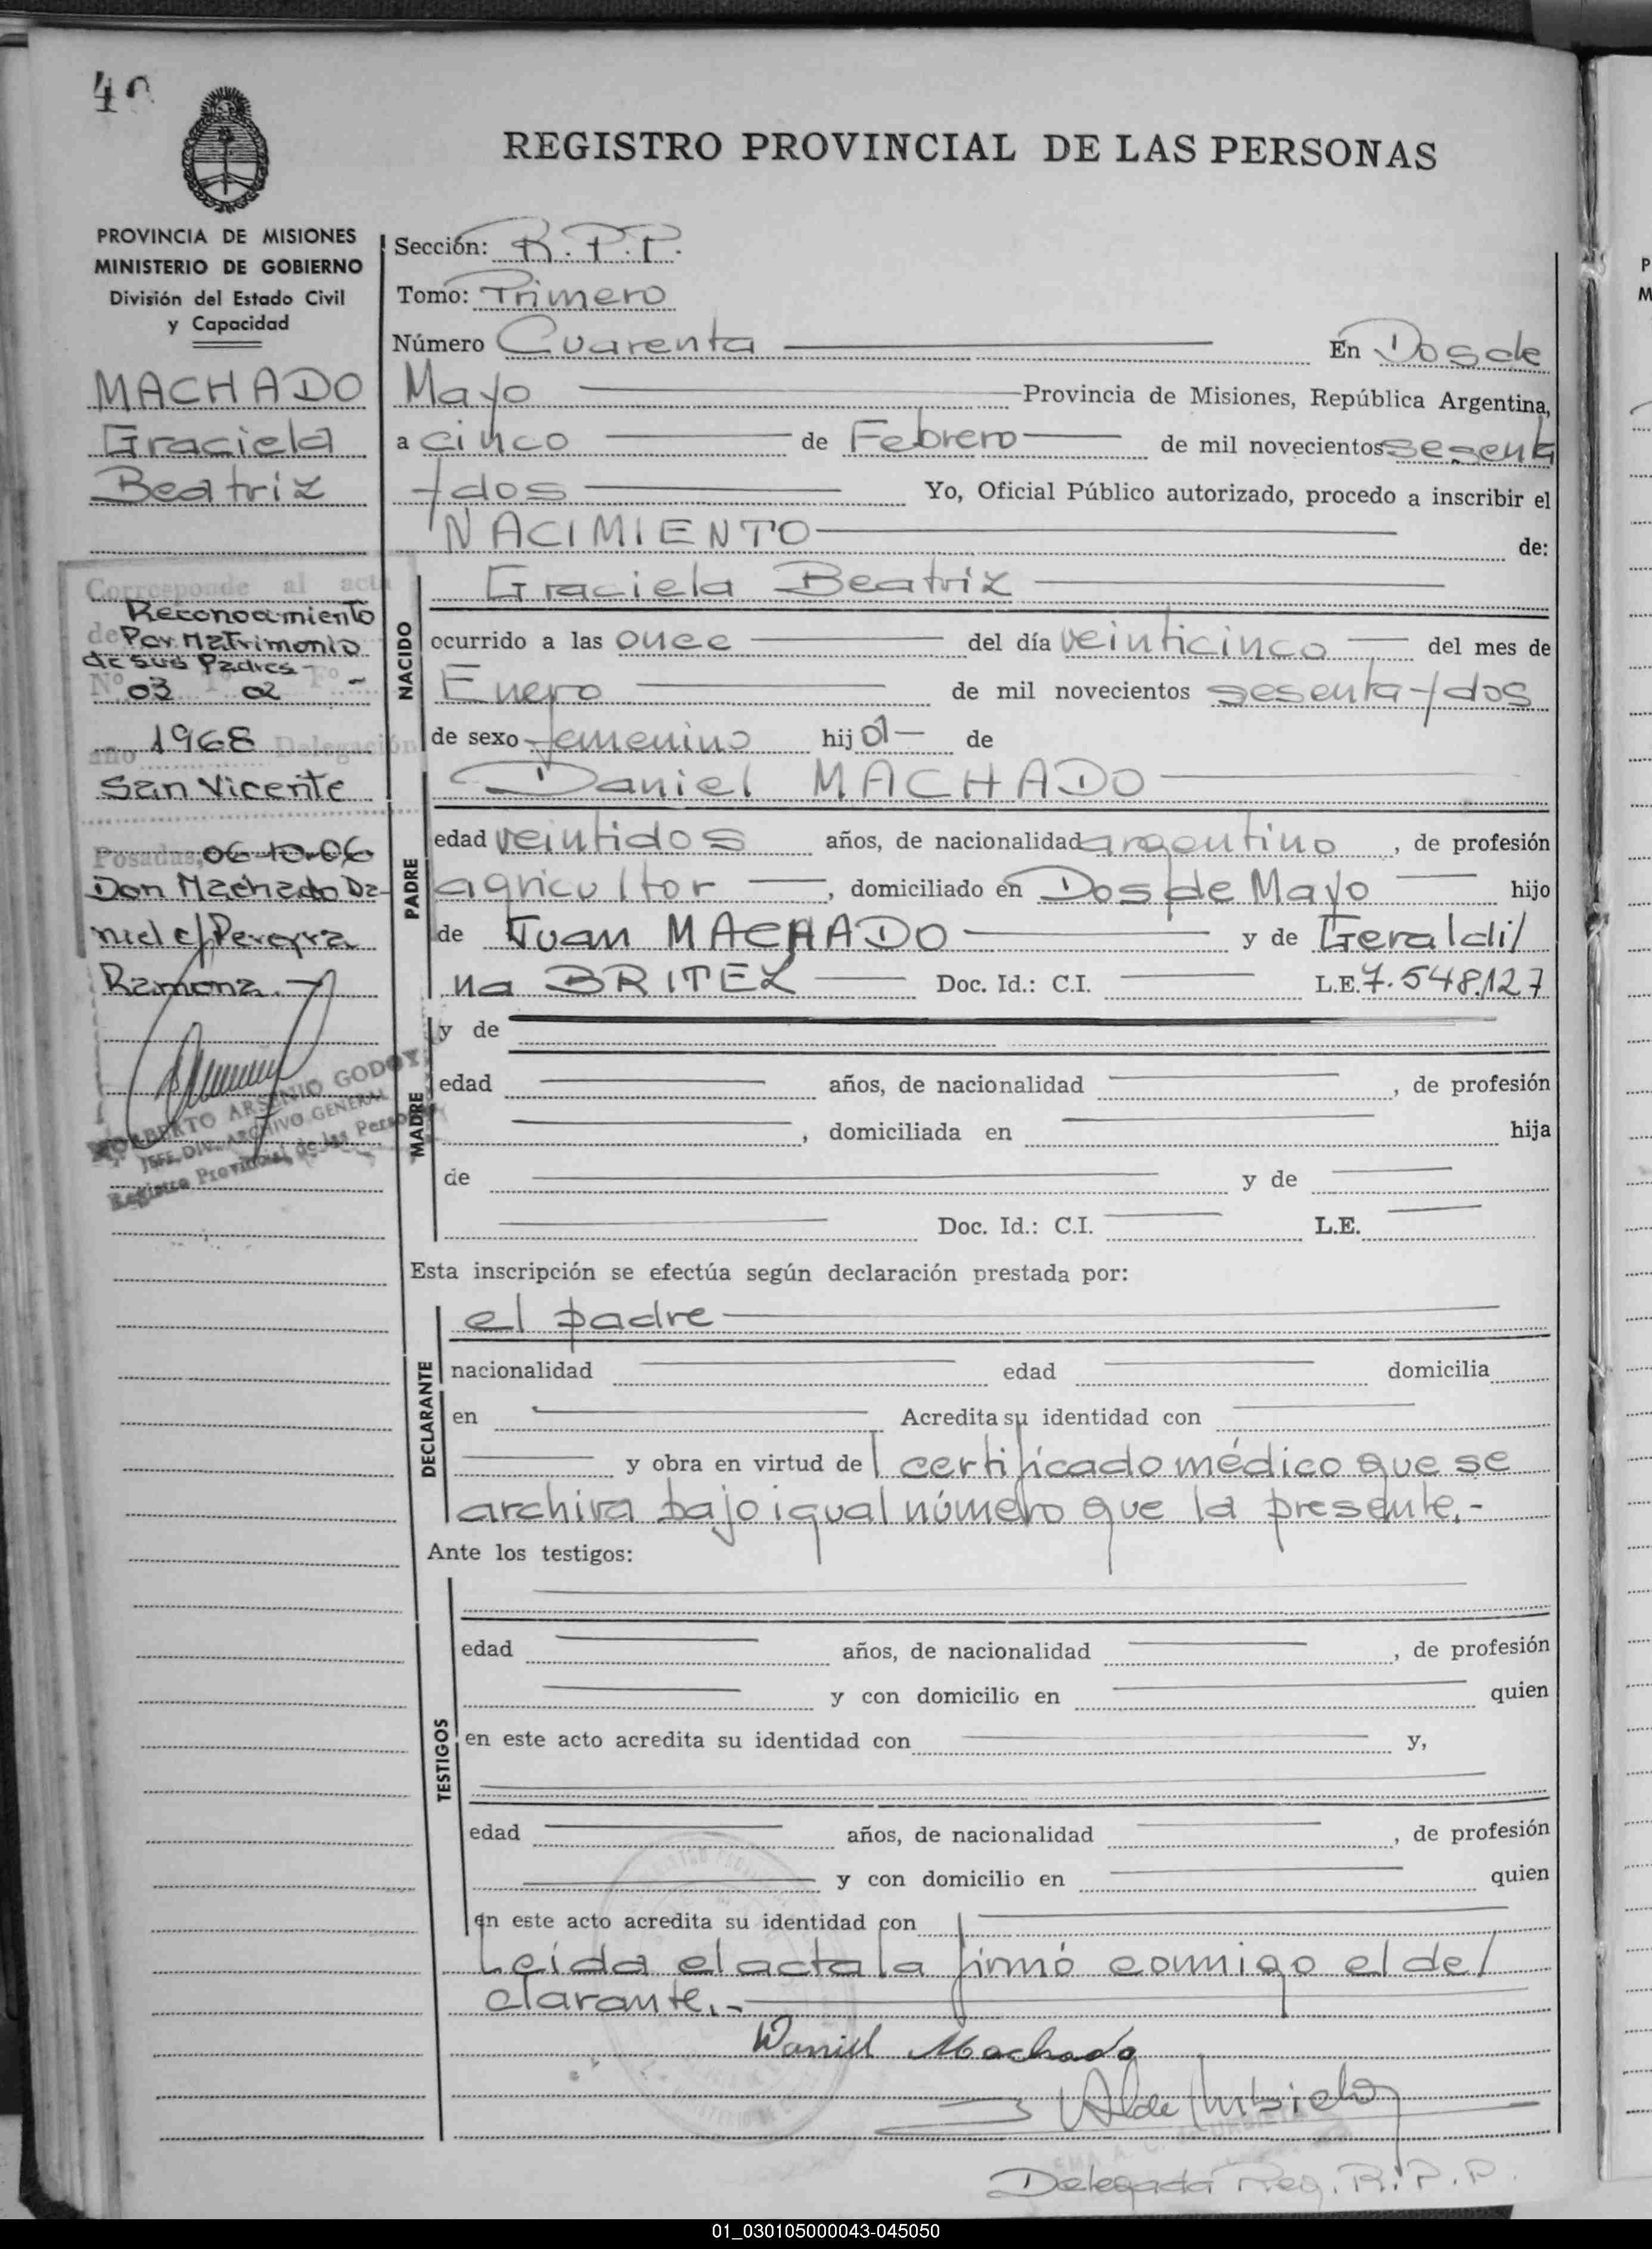 40
REGISTRO PROVINCIAL DE LAS PERSONAS
PROVINCIA DE MISIONES
MINISTERIO DE GOBIERNO
División del Estado Civil
y Capacidad
MACHADO
Graciela
Beatriz
Corresponde al acta
Reconocimiento
de Por Matrimonio
de sus Padres -
Nº 03 Tº 02 Fº -
año 1968 Delegación
San Vicente
Posadas, 06-10-06
Don Machado Da-
niel c/ Pereyra
Ramona.-
NORBERTO ARSENIO GODOY
JEFE DIV. ARCHIVO GENERAL
Registro Provincial de las Personas
Sección: R.P.P.
Tomo: Primero
Número Cuarenta En Dos de
Mayo Provincia de Misiones, República Argentina,
a cinco de Febrero de mil novecientos sesenta
y dos Yo, Oficial Público autorizado, procedo a inscribir el
NACIMIENTO de:
NACIDO
Graciela Beatriz
ocurrido a las once del día veinticinco del mes de
Enero de mil novecientos sesenta y dos
de sexo femenino hija de
PADRE
Daniel MACHADO
edad veintidos años, de nacionalidad argentino, de profesión
agricultor, domiciliado en Dos de Mayo hijo
de Juan MACHADO y de Geraldi/
na BRITEZ Doc. Id.: C.I. L.E. 7.548.127
MADRE
y de
edad años, de nacionalidad , de profesión
, domiciliada en hija
de y de
Doc. Id.: C.I. L.E.
Esta inscripción se efectúa según declaración prestada por:
DECLARANTE
el padre
nacionalidad edad domicilia
en Acredita su identidad con
y obra en virtud del certificado médico que se
archiva bajo igual número que la presente.-
Ante los testigos:
TESTIGOS
edad años, de nacionalidad , de profesión
y con domicilio en quien
en este acto acredita su identidad con y,
edad años, de nacionalidad , de profesión
y con domicilio en quien
en este acto acredita su identidad con
Leida el acta la firmó conmigo el de/
clarante.-
Daniel Machado
Delegada Reg. R.P.P.
01_030105000043-045050